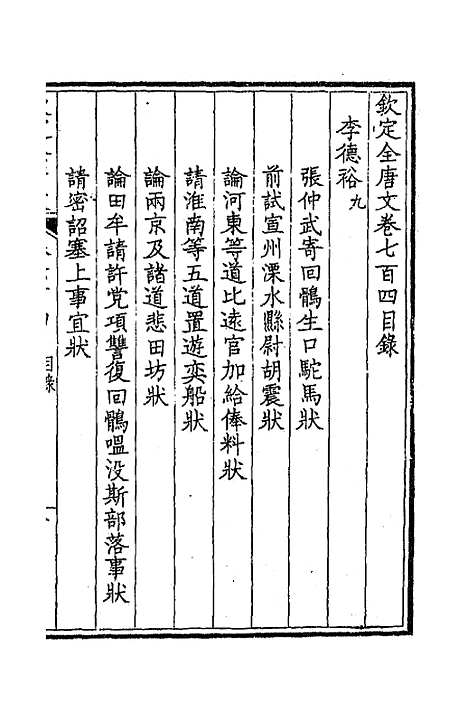 欽定全唐文卷七百四目錄
李德裕九
張仲武寄回鶻生口駝馬狀
前試宣州溧水縣尉胡震狀
論河東等道比遠官加給俸料狀
請淮南等五道置遊奕船狀
論兩京及諸道悲田坊狀
論田牟請許党項讐復回鶻嗢没斯部落事狀
請密詔塞上事宜狀
目錄